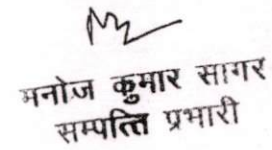 मनोज कुमार सागर
सम्पत्ति प्रभारी